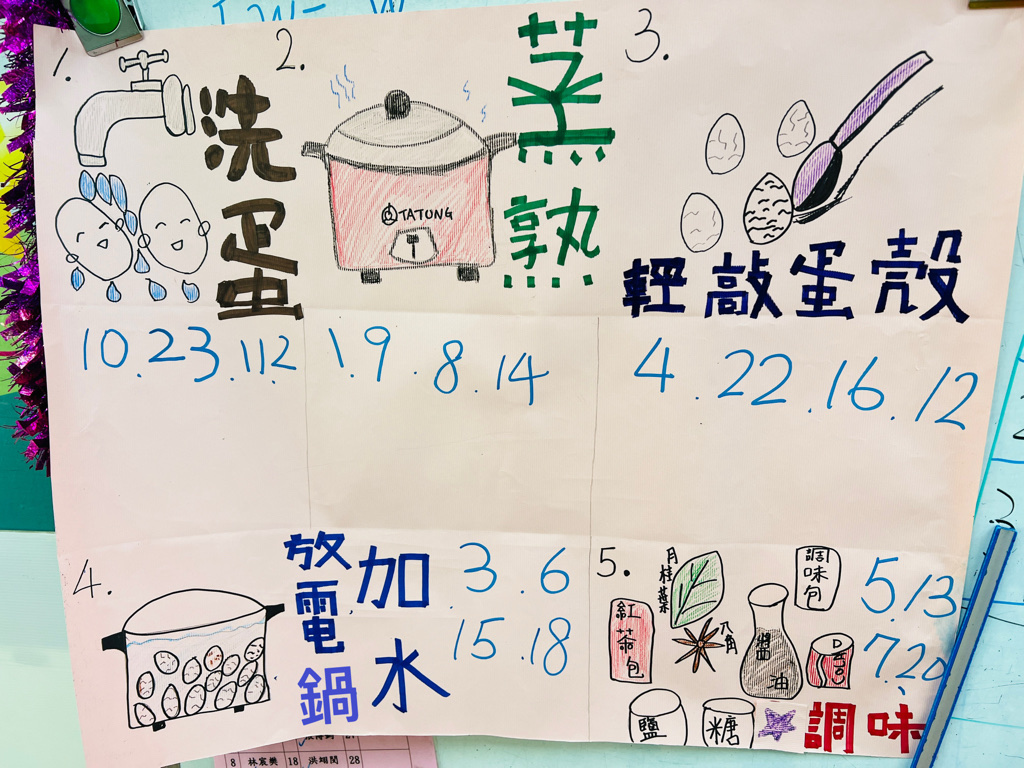 1.
洗蛋
10.23.11.2
2.
蒸熟
TATUNG
1.9.8.14
3.
輕敲蛋殼
4.22.16.12
4.
放電鍋
加水
3.6
15.18
5.
月桂葉
調味包
紅茶包
八角
醬油
鹽
糖
調味
5.13
7.20
8 林宸樊 18 洪翊閔 28